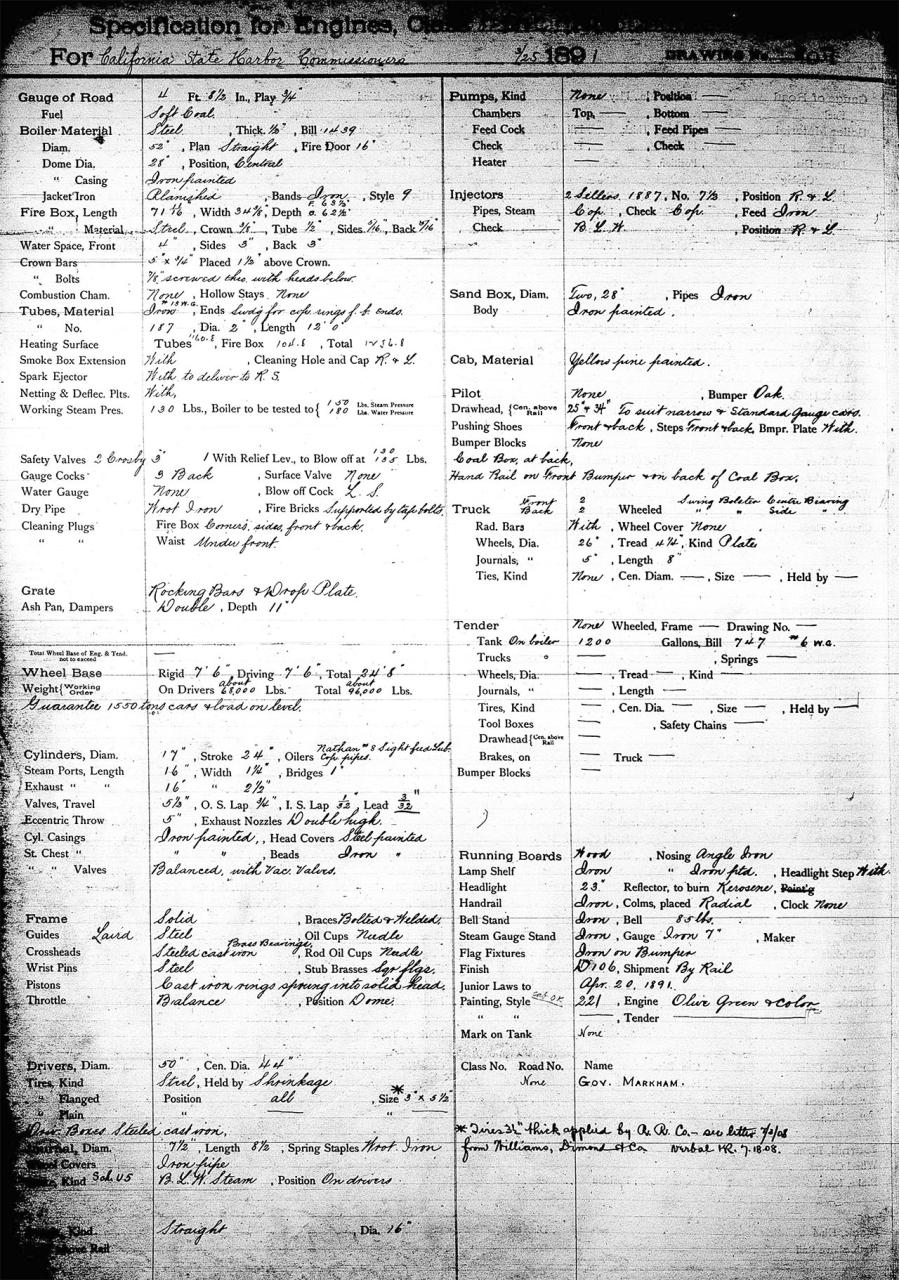 Specification for Engines,
For California State Harbor Commissioners 3/25 1891 DRAWING No.
Gauge of Road 4 Ft. 8½ In., Play ¾"
Fuel Soft Coal.
Boiler Material Steel , Thick. , Bill 1439
Diam. 52" , Plan Straight , Fire Door 16"
Dome Dia. 28" , Position, Central
" Casing Iron painted
Jacket Iron Planished , Bands Iron , Style 9
Fire Box, Length , Width 34⅜ , Depth F. 63½" B. 62½"
" Material Steel , Crown ⅜" , Tube ½" , Sides 5/16 , Back
Water Space, Front 4" , Sides 3" , Back 3"
Crown Bars 5" x ¾" Placed 1½" above Crown.
" Bolts ⅞" screwed thro. with heads below.
Combustion Cham. None , Hollow Stays None
Tubes, Material Iron #13 W.G. , Ends Swdg for cop. rings f. b. ends.
" No. 187 , Dia. 2" , Length 12' 0"
Heating Surface Tubes 1160.8 , Fire Box 104.8 , Total
Smoke Box Extension With , Cleaning Hole and Cap R. & L.
Spark Ejector With to deliver to R. S.
Netting & Deflec. Plts. With,
Working Steam Pres. 130 Lbs., Boiler to be tested to { 150 Lbs. Steam Pressure 180 Lbs. Water Pressure
Safety Valves 2 Crosby 3" 1 With Relief Lev., to Blow off at 130 135 Lbs.
Gauge Cocks 3 Back , Surface Valve None
Water Gauge None , Blow off Cock L. S.
Dry Pipe Wrot Iron , Fire Bricks Supported by tap bolts.
Cleaning Plugs Fire Box Corners, sides, front & back.
" " Waist Under front.
Grate Rocking Bars & Drop Plate.
Ash Pan, Dampers Double , Depth 11"
Total Wheel Base of Eng. & Tend. not to exceed —
Wheel Base Rigid 7' 6" Driving 7' 6" , Total 24' 8"
Weight { Working Order On Drivers about 68,000 Lbs. Total about 96,000 Lbs.
Guarantee 1550 tons cars & load on level.
Cylinders, Diam. 17" , Stroke 24" , Oilers Nathan #8 Sight feed Lub. Cop. pipes.
Steam Ports, Length 16" , Width 1¼" , Bridges 1"
Exhaust " " 16" " 2½"
Valves, Travel , O. S. Lap ¾" , I. S. Lap 1/32" , Lead 3/32"
Eccentric Throw 5" , Exhaust Nozzles Double high.
Cyl. Casings Iron painted , Head Covers Steel painted
St. Chest " " " , Beads Iron "
" " Valves Balanced, with Vac. Valves.
Frame Solid , Braces Bolted & Welded.
Guides Laird Steel , Oil Cups Needle
Crossheads Steeled cast iron Brass Bearings , Rod Oil Cups Needle
Wrist Pins Steel , Stub Brasses Sqr flgs.
Pistons Cast iron rings sprung into solid head.
Throttle Balance , Position Dome.
Drivers, Diam. 50" , Cen. Dia. 44"
Tires, Kind Steel , Held by Shrinkage
" Flanged Position all , Size * 3" x 5½"
" Plain " — " —
Driv. Boxes Steeled cast iron.
Journal, Diam. 7½" , Length 8½ , Spring Staples Wrot Iron
Wheel Covers Iron pipe
Kind Sch. US B. L. W. Steam , Position On drivers
Kind. Straight , Dia. 16"
above Rail
Pumps, Kind None , Position —
Chambers Top, — , Bottom —
Feed Cock — , Feed Pipes —
Check — , Check —
Heater —
Injectors 2 Sellers 1887 , No. 7½ , Position R & L.
Pipes, Steam Cop. , Check Cop. , Feed Iron
Check B. L. W. , Position R. & L.
Sand Box, Diam. Two, 28" , Pipes Iron
Body Iron painted.
Cab, Material Yellow pine painted.
Pilot None , Bumper Oak.
Drawhead, { Cen. above Rail 25" & 34" To suit narrow & Standard Gauge cars.
Pushing Shoes Front & back , Steps Front & back, Bmpr. Plate With.
Bumper Blocks None
Coal Box, at back,
Hand Rail on Front Bumper & on back of Coal Box.
Truck Front 2 Wheeled Swing Bolster Center Bearing
Back 2 " " Side "
Rad. Bars With , Wheel Cover None
Wheels, Dia. 26" , Tread 4¼" , Kind Plate
Journals, " 5" , Length 8"
Ties, Kind None , Cen. Diam. — , Size — , Held by —
Tender None Wheeled, Frame — Drawing No. —
Tank On boiler 1200 Gallons, Bill 747 #6 W.G.
Trucks — , Springs —
Wheels, Dia. — , Tread — , Kind —
Journals, " — , Length —
Tires, Kind — , Cen. Dia. — , Size — , Held by —
Tool Boxes — , Safety Chains —
Drawhead { Cen. above Rail —
Brakes, on — Truck —
Bumper Blocks —
Running Boards Wood , Nosing Angle Iron
Lamp Shelf Iron " Iron ptd. , Headlight Step With.
Headlight 23" Reflector, to burn Kerosene, Paint'g
Handrail Iron , Colms, placed Radial , Clock None
Bell Stand Iron , Bell 85 lbs.
Steam Gauge Stand Iron , Gauge Iron 7" , Maker
Flag Fixtures Iron on Bumper
Finish D106 , Shipment By Rail
Junior Laws to Apr. 20, 1891.
Painting, Style 221 , Engine Olive Green & color
" " — , Tender —
Mark on Tank None
Class No. Road No. Name
None Gov. Markham.
* Tires 3½" thick applied by R. R. Co. – see letter 7/2/08
from Williams, Dimond & Co Verbal HR. 7.18.08.